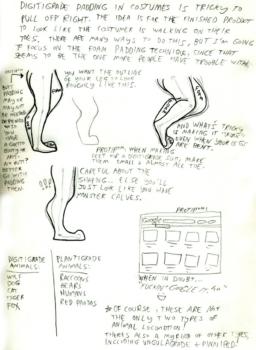 DIGITIGRADE PADDING IN COSTUMES IS TRICKY TO
PULL OFF RIGHT. THE IDEA IS FOR THE FINISHED PRODUCT
TO LOOK LIKE THE COSTUMER IS WALKING ON THEIR
TOES. THERE ARE MANY WAYS TO DO THIS, BUT I'M GOING
TO FOCUS ON THE FOAM PADDING TECHNIQUE, SINCE THAT
SEEMS TO BE THE ONE MORE PEOPLE HAVE TROUBLE WITH.
YOU WANT THE OUTSIDE
OF YOUR LEG TO LOOK
ROUGHLY LIKE THIS.
PADDING
MAY OR
MAY NOT
BE NEEDED
AND WHAT'S TRICKY
IS MAKING IT
EVEN WHEN YOUR LEGS
ARE BENT.
PROTIP: WHEN MAKING
FEET FOR A DIGITIGRADE SUIT, MAKE
THEM SMALL & ALMOST ALL TOE.
CAREFUL ABOUT THE
SHAPING... ELSE YOU'LL
JUST LOOK LIKE YOU HAVE
MONSTER CALVES.
PROTIP
WHEN IN DOUBT...
DIGITIGRADE
ANIMALS:
WOLF
DOG
CAT
TIGER
FOX
PLANTIGRADE
ANIMALS:
RACCOONS
BEARS
HUMANS
RED PANDAS
OF COURSE, THESE ARE NOT
THE ONLY TWO TYPES OF
ANIMAL LOCOMOTION!
THERE'S ALSO A MYRIAD OF OTHER TYPES,